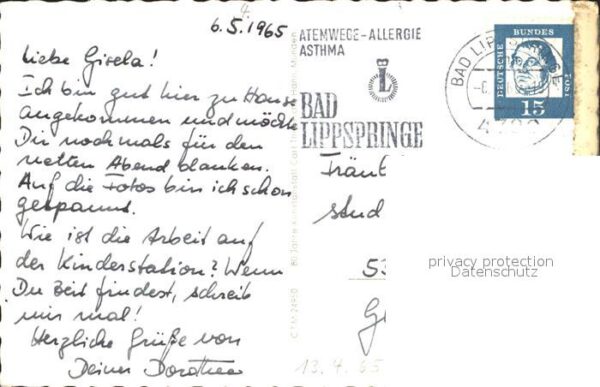 6.5.1965
Liebe Gisela!
Ich bin gut hier zu Hause
angekommen und möchte
Dir nochmals für den
netten Abend danken.
Auf die Fotos bin ich schon
gespannt.
Wie ist die Arbeit auf
der Kinderstation? Wenn
Du Zeit findest, schreib
mir mal!
Herzliche Grüße von
Deiner Dorothee
ATEMWEGE-ALLERGIE
ASTHMA
BAD
LIPPSPRINGE
BAD LIPPSPRINGE
DEUTSCHE BUNDES POST
15
Fräul
stud
53
G
13.4.65
privacy protection
Datenschutz